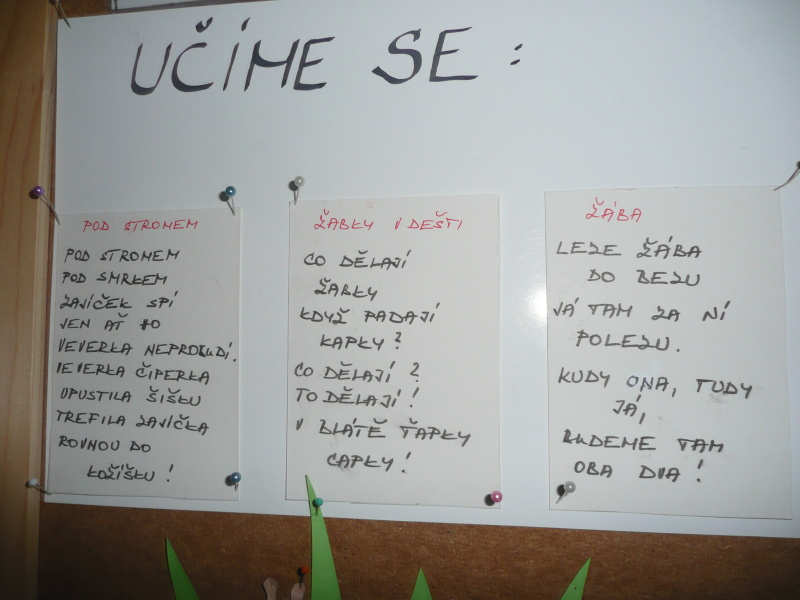 UČÍME SE :
POD STROMEM
POD STROMEM
POD SMRKEM
ZAJÍČEK SPÍ
JEN AŤ HO
VEVERKA NEPROBUDÍ.
VEVERKA ČIPERKA
UPUSTILA ŠIŠKU
TREFILA ZAJÍČKA
ROVNOU DO
KOŽÍŠKU !
ŽABKY V DEŠTI
CO DĚLAJÍ
ŽABKY
KDYŽ PADAJÍ
KAPKY ?
CO DĚLAJÍ ?
TO DĚLAJÍ !
V BLÁTĚ ŤAPKY
CAPKY !
ŽÁBA
LEZE ŽÁBA
DO BEZU
JÁ TAM ZA NÍ
POLEZU.
KUDY ONA, TUDY
JÁ,
BUDEME TAM
OBA DVA !